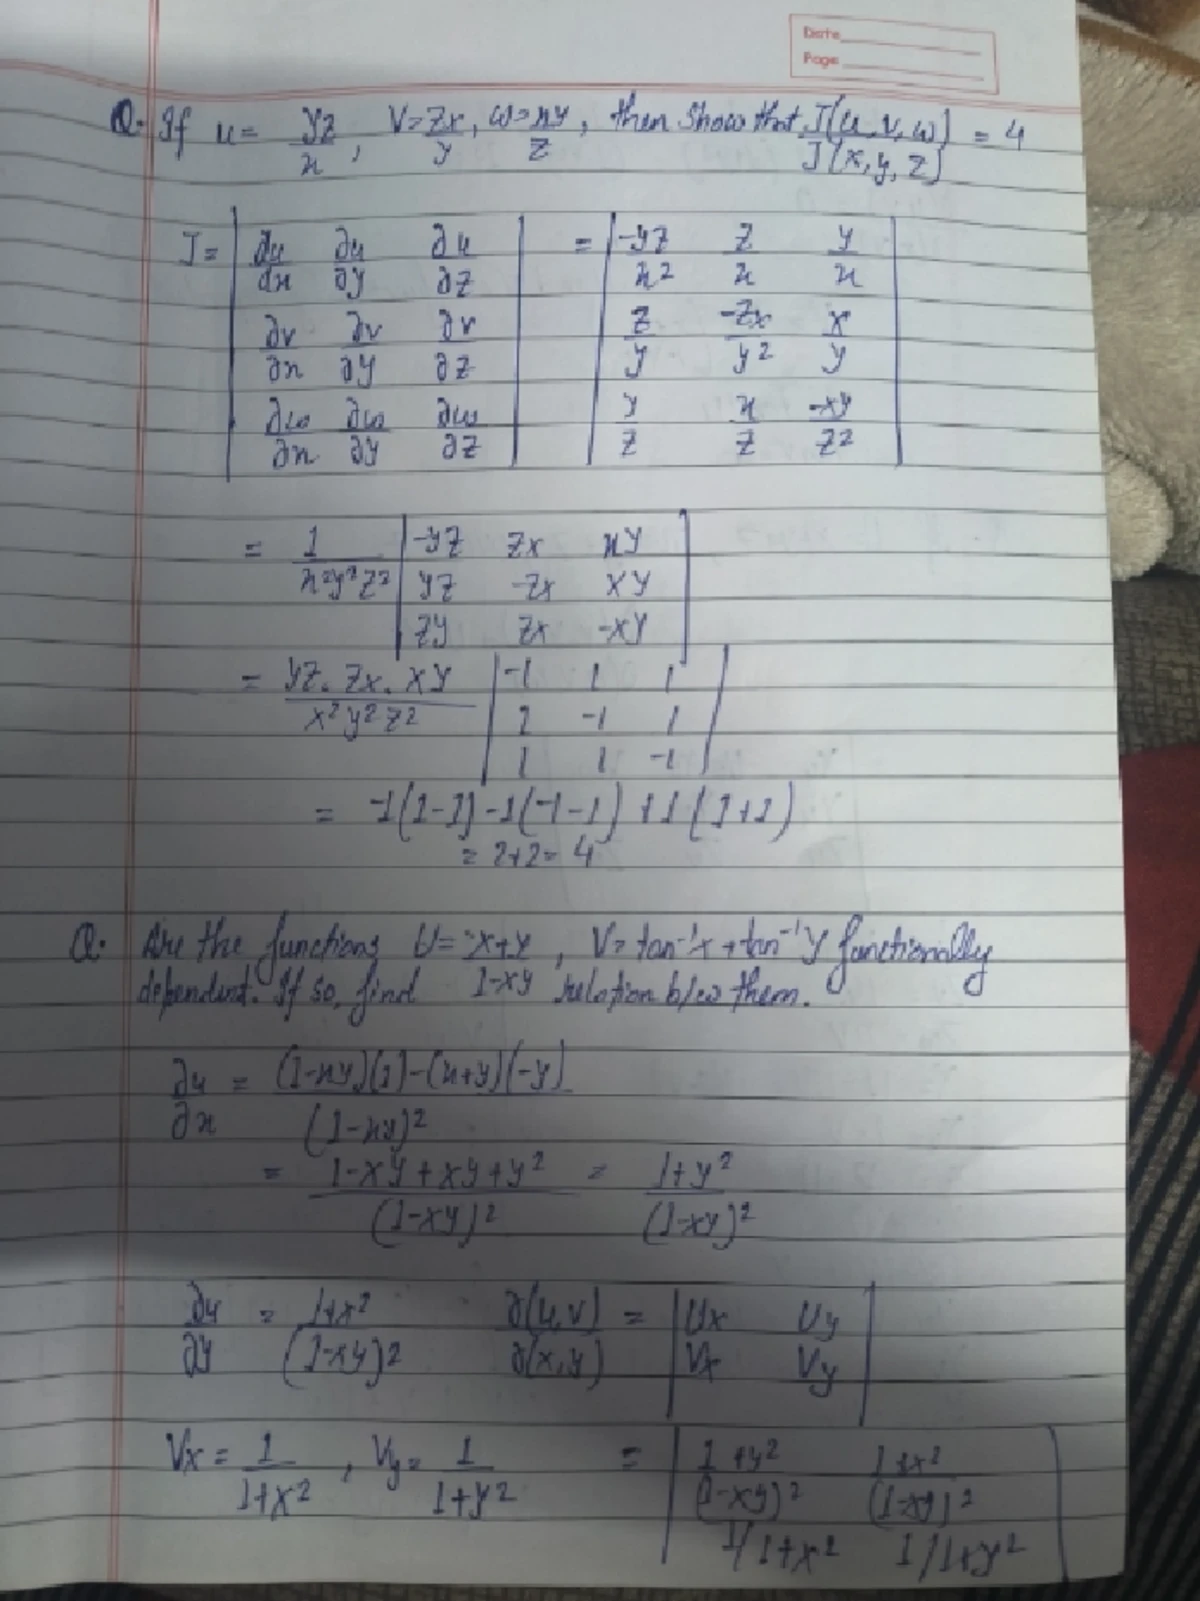 Date
Page
Q. If u = yz/x, v = zx/y, w = xy/z, then show that J(u,v,w)/J(x,y,z) = 4
J = | ∂u/∂x ∂u/∂y ∂u/∂z | = | -yz/x² z/x y/x |
| ∂v/∂x ∂v/∂y ∂v/∂z | | z/y -zx/y² x/y |
| ∂w/∂x ∂w/∂y ∂w/∂z | | y/z x/z -xy/z² |
= 1/x²y²z² | -yz zx xy |
| yz -zx xy |
| zy zx -xy |
= yz.zx.xy/x²y²z² | -1 1 1 |
| 1 -1 1 |
| 1 1 -1 |
= -1(1-1)-1(-1-1)+1(1+1)
= 2+2= 4
Q. Are the functions U = x+y/1-xy, V= tan⁻¹x + tan⁻¹y functionally
dependent. If so, find relation b/w them.
∂u/∂x = (1-xy)(1)-(x+y)(-y)/(1-xy)²
= 1-xy+xy+y²/(1-xy)² = 1+y²/(1-xy)²
∂u/∂y = 1+x²/(1-xy)² ∂(u,v)/∂(x,y) = | Ux Uy |
| Vx Vy |
Vx = 1/1+x², Vy = 1/1+y² = | 1+y²/(1-xy)² 1+x²/(1-xy)² |
| 1/1+x² 1/1+y² |